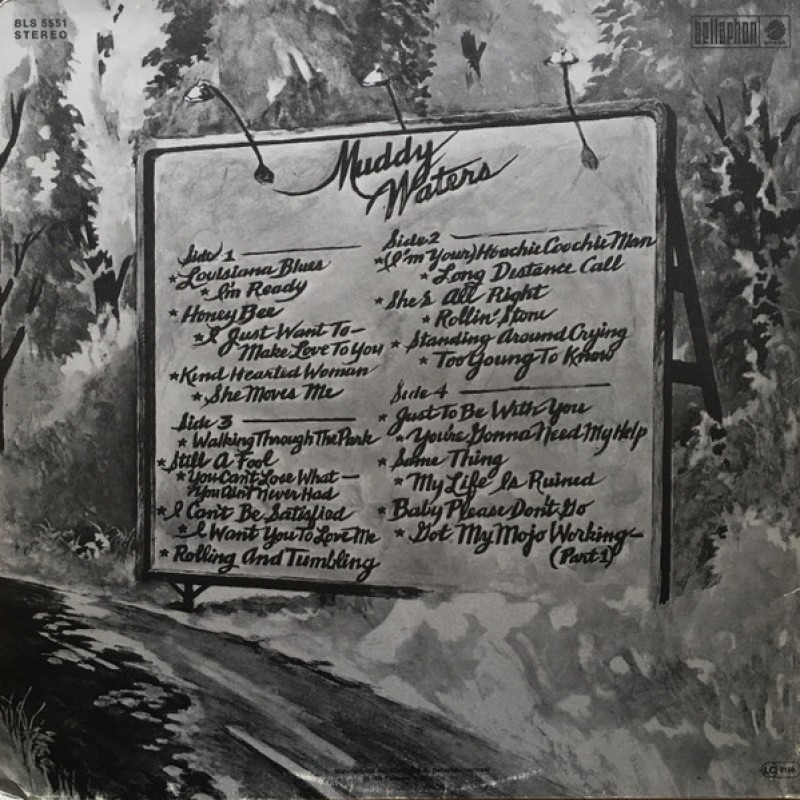 BLS 5551
STEREO
bellaphon
Muddy
Waters
Side 1
* Louisiana Blues
* I'm Ready
* Honey Bee
* I Just Want To-
Make Love To You
* Kind Hearted Woman
* She Moves Me
Side 2
* (I'm Your) Hoochie Coochie Man
* Long Distance Call
* She's All Right
* Rollin' Stone
* Standing Around Crying
* Too Young To Know
Side 3
* Walking Through The Park
* Still A Fool
* You Can't Lose What-
You Ain't Never Had
* I Can't Be Satisfied
* I Want You To Love Me
* Rolling And Tumbling
Side 4
* Just To Be With You
* You're Gonna Need My Help
* Same Thing
* My Life Is Ruined
* Baby Please Don't Go
* Got My Mojo Working-
(Part 1)